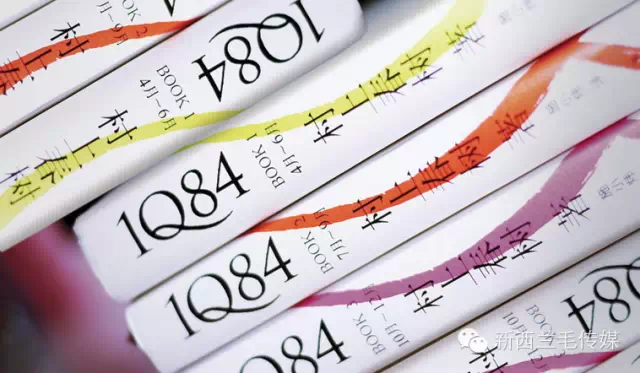 BOOK 2
村上春
1Q84
BOOK 1
4月~6月
村上春樹
1Q84
BOOK 1
4月~6月
村上春樹
1Q84
BOOK 2
7月~9月
村上春樹
1Q84
BOOK 3
10月~12月
村上春樹
1Q84
BOOK 3
新西兰毛传媒